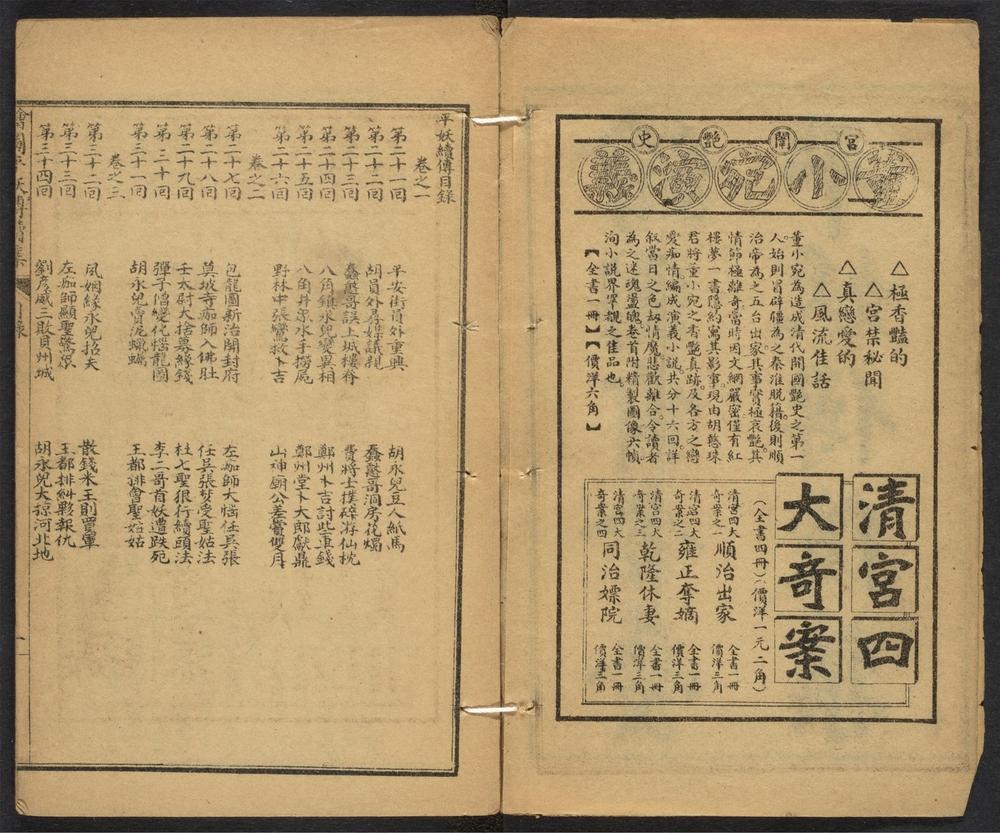 宮闈艷史
董小宛演義
△極香艷的
△宮禁秘聞
△真戀愛的
△風流佳話
董小宛為造成清代開國艷史之第一
人始則冒辟疆為之秦淮脫籍後則順
治帝為之五台出家其事實極哀艷。其
情節極離奇當時因文網嚴密僅有紅
樓夢一書隱約寫其影事。現由胡憨珠
君將董小宛之香艷真跡。及各方之戀
愛痴情編成演義小說。共分十六回。詳
叙當日之色刼情魔悲歡離合。令讀者
為之迷魂盪魄。卷首附精製圖像六幀
洵小說界罕覯之佳品也。
【全書一冊】【價洋六角】
清宮四
大奇案
（全書四冊）（價洋一元二角）
清宮四大奇案之一 順治出家 全書一冊 價洋三角
清宮四大奇案之二 雍正奪嫡 全書一冊 價洋三角
清宮四大奇案之三 乾隆休妻 全書一冊 價洋三角
清宮四大奇案之四 同治嫖院 全書一冊 價洋三角
平妖續傳目錄
卷之一
第二十一回 平安街員外重興 胡永兒豆人紙馬
第二十二回 胡員外尋媒議親 蠢憨哥洞房花燭
第二十三回 蠢憨哥誤上城樓脊 費將士撲碎游仙枕
第二十四回 八角鎮永兒變異相 鄭州卜吉討些車錢
第二十五回 八角井衆水手撈屍 鄭州堂卜大郎獻鼎
第二十六回 野林中張鸞救卜吉 山神廟公差賞雙月
卷之二
第二十七回 包龍圖新治開封府 左瘸師大惱任吳張
第二十八回 莫坡寺瘸師入佛肚 任吳張夢受聖姑法
第二十九回 王太尉大捨募緣錢 杜七聖狠行續頭法
第三十回 彈子僧變化惱龍圖 李二哥首妖遭跌死
第三十一回 胡永兒賣泥蠟燭 王都排會聖姑姑
卷之三
第三十二回 夙姻緣永兒招夫 散錢米王則買軍
第三十三回 左瘸師顯聖驚衆 王都排糾夥報仇
第三十四回 劉彥威三敗貝州城 胡永兒大掠河北地
目錄
一